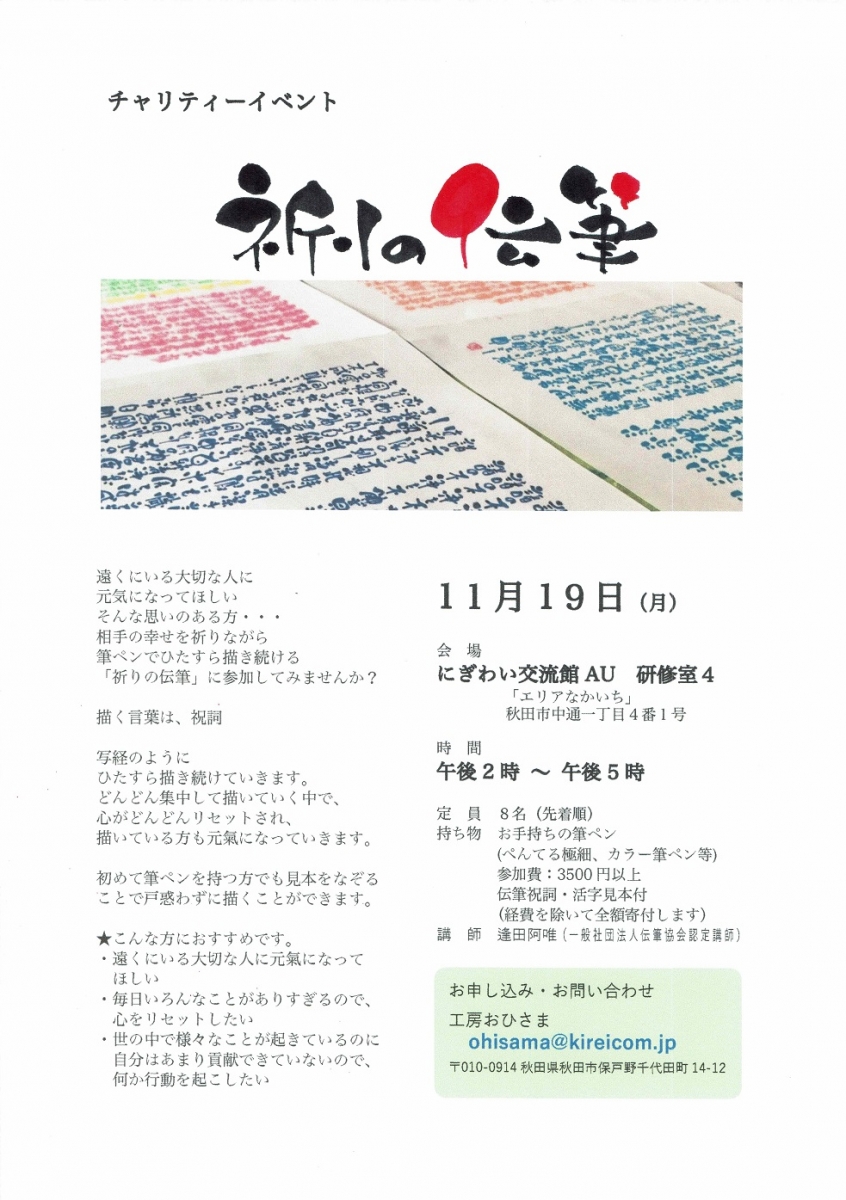 チャリティーイベント
祈りの伝筆
遠くにいる大切な人に
元気になってほしい
そんな思いのある方・・・
相手の幸せを祈りながら
筆ペンでひたすら描き続ける
「祈りの伝筆」に参加してみませんか？
描く言葉は、祝詞
写経のように
ひたすら描き続けていきます。
どんどん集中して描いていく中で、
心がどんどんリセットされ、
描いている方も元氣になっていきます。
初めて筆ペンを持つ方でも見本をなぞる
ことで戸惑わずに描くことができます。
★こんな方におすすめです。
・遠くにいる大切な人に元氣になって
ほしい
・毎日いろんなことがありすぎるので、
心をリセットしたい
・世の中で様々なことが起きているのに
自分はあまり貢献できていないので、
何か行動を起こしたい
11月19日（月）
会　場
にぎわい交流館AU　研修室４
「エリアなかいち」
秋田市中通一丁目４番１号
時　間
午後２時 ～ 午後５時
定　員　８名（先着順）
持ち物　お手持ちの筆ペン
(ぺんてる極細、カラー筆ペン等)
参加費：3500円以上
伝筆祝詞・活字見本付
(経費を除いて全額寄付します)
講　師　逢田阿唯（一般社団法人伝筆協会認定講師）
お申し込み・お問い合わせ
工房おひさま
ohisama@kireicom.jp
〒010-0914 秋田県秋田市保戸野千代田町 14-12